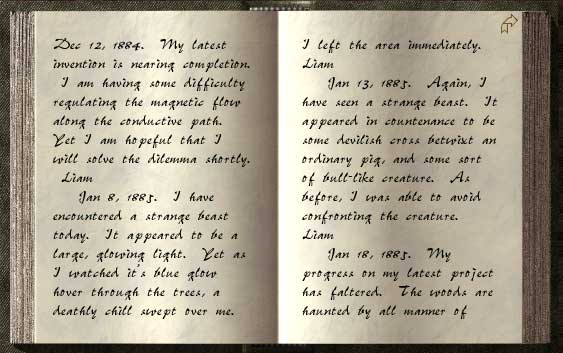 Dec 12, 1884.  My latest
invention is nearing completion.
I am having some difficulty
regulating the magnetic flow
along the conductive path.
Yet I am hopeful that I
will solve the dilemma shortly.
Liam
Jan 8, 1885.  I have
encountered a strange beast
today.  It appeared to be a
large, glowing light.  Yet as
I watched it's blue glow
hover through the trees, a
deathly chill swept over me.
I left the area immediately.
Liam
Jan 13, 1885.  Again, I
have seen a strange beast.  It
appeared in countenance to be
some devilish cross betwixt an
ordinary pig, and some sort
of bull-like creature.  As
before, I was able to avoid
confronting the creature.
Liam
Jan 18, 1885.  My
progress on my latest project
has faltered.  The woods are
haunted by all manner of